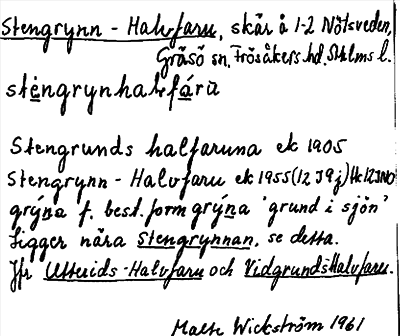 Stengrynn - Halvfaru, skär å 1-2 Nötsveden,
Gräsö sn, Frösåkers hd, Sthlms l.
sténgrynhalvfára
Stengrunds halfaruna ek 1905
Stengrynn - Halvfaru ek 1955 (12 J9j) Hk 12JNO
grýna f. best. form grýna 'grund i sjön'
Ligger nära Stengrynnan, se detta.
Jfr Utterids-Halvfaru och Vidgrunds Halvfaru.
Malte Wickström 1961